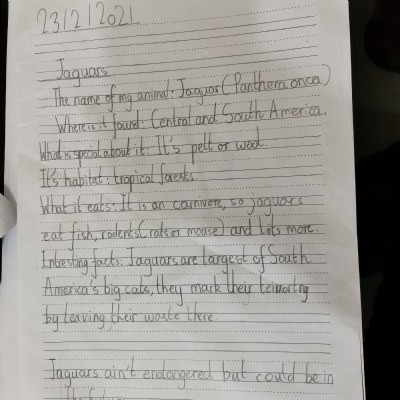 23/2/2021
Jaguars
The name of my animal: Jaguar (Panthera onca)
Where is it found: Central and South America.
What is special about it: It's pelt or wool.
It's habitat: tropical forests.
What it eats: It is an carnivore, so jaguars
eat fish, rodents (rats or mouse) and lots more.
Intresting facts: Jaguars are largest of South
America's big cats, they mark their teirrortry
by leaving their waste there.
Jaguars ain't endangered but could be in
the future